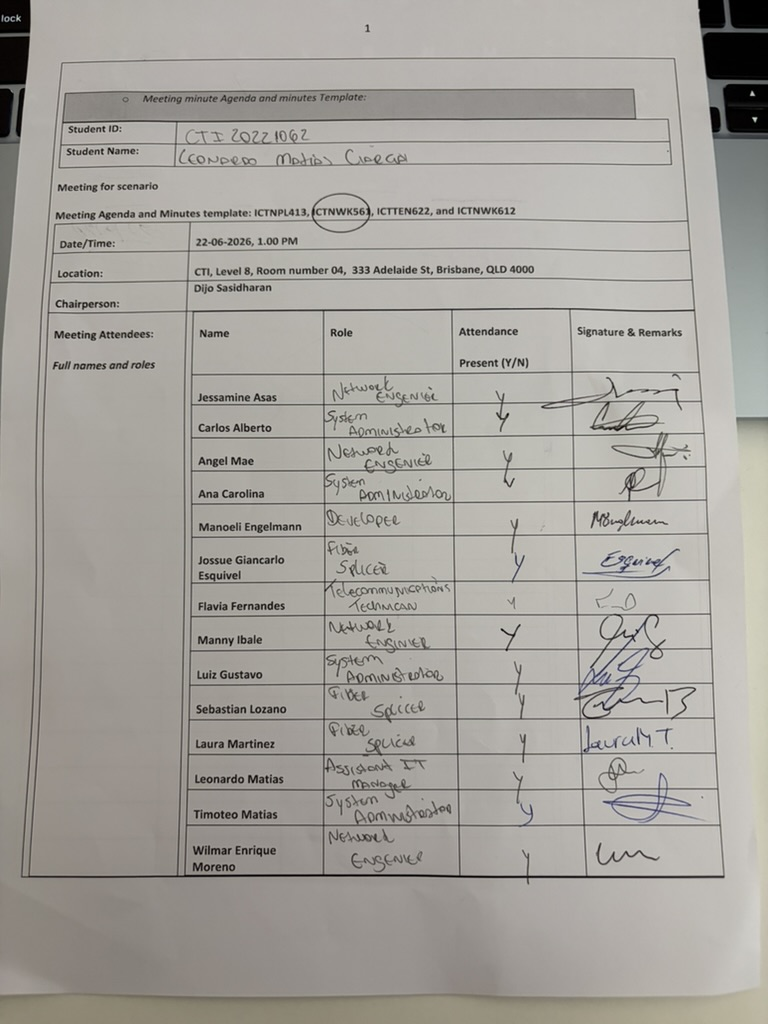 lock
1
o Meeting minute Agenda and minutes Template:
Student ID: CTI 20221062
Student Name: LEONARDO Matias
Meeting for scenario
Meeting Agenda and Minutes template: ICTNPL413, ICTNWK561, ICTTEN622, and ICTNWK612
Date/Time: 22-06-2026, 1.00 PM
Location: CTI, Level 8, Room number 04, 333 Adelaide St, Brisbane, QLD 4000
Chairperson: Dijo Sasidharan
Meeting Attendees: Name Role Attendance Signature & Remarks
Full names and roles Present (Y/N)
Jessamine Asas Network ENGENIER Y
Carlos Alberto System ADMINistrator Y
Angel Mae Network ENGENIER Y
Ana Carolina System ADMINIstrator Y
Manoeli Engelmann DEVELOPER Y MEngelmann
Jossue Giancarlo Fiber
Esquivel SPLICER Y Esquivel
Flavia Fernandes Telecommunications TECHNICAN Y
Manny Ibale Network ENGINIER Y
Luiz Gustavo System ADMINISTRATOR Y
Sebastian Lozano FIBER SPLICER Y
Laura Martinez FIBER SPLICER Y LauraM.T.
Leonardo Matias Assistant IT MANAGER Y
Timoteo Matias System ADMINistrator Y
Wilmar Enrique Network
Moreno ENGENIER Y